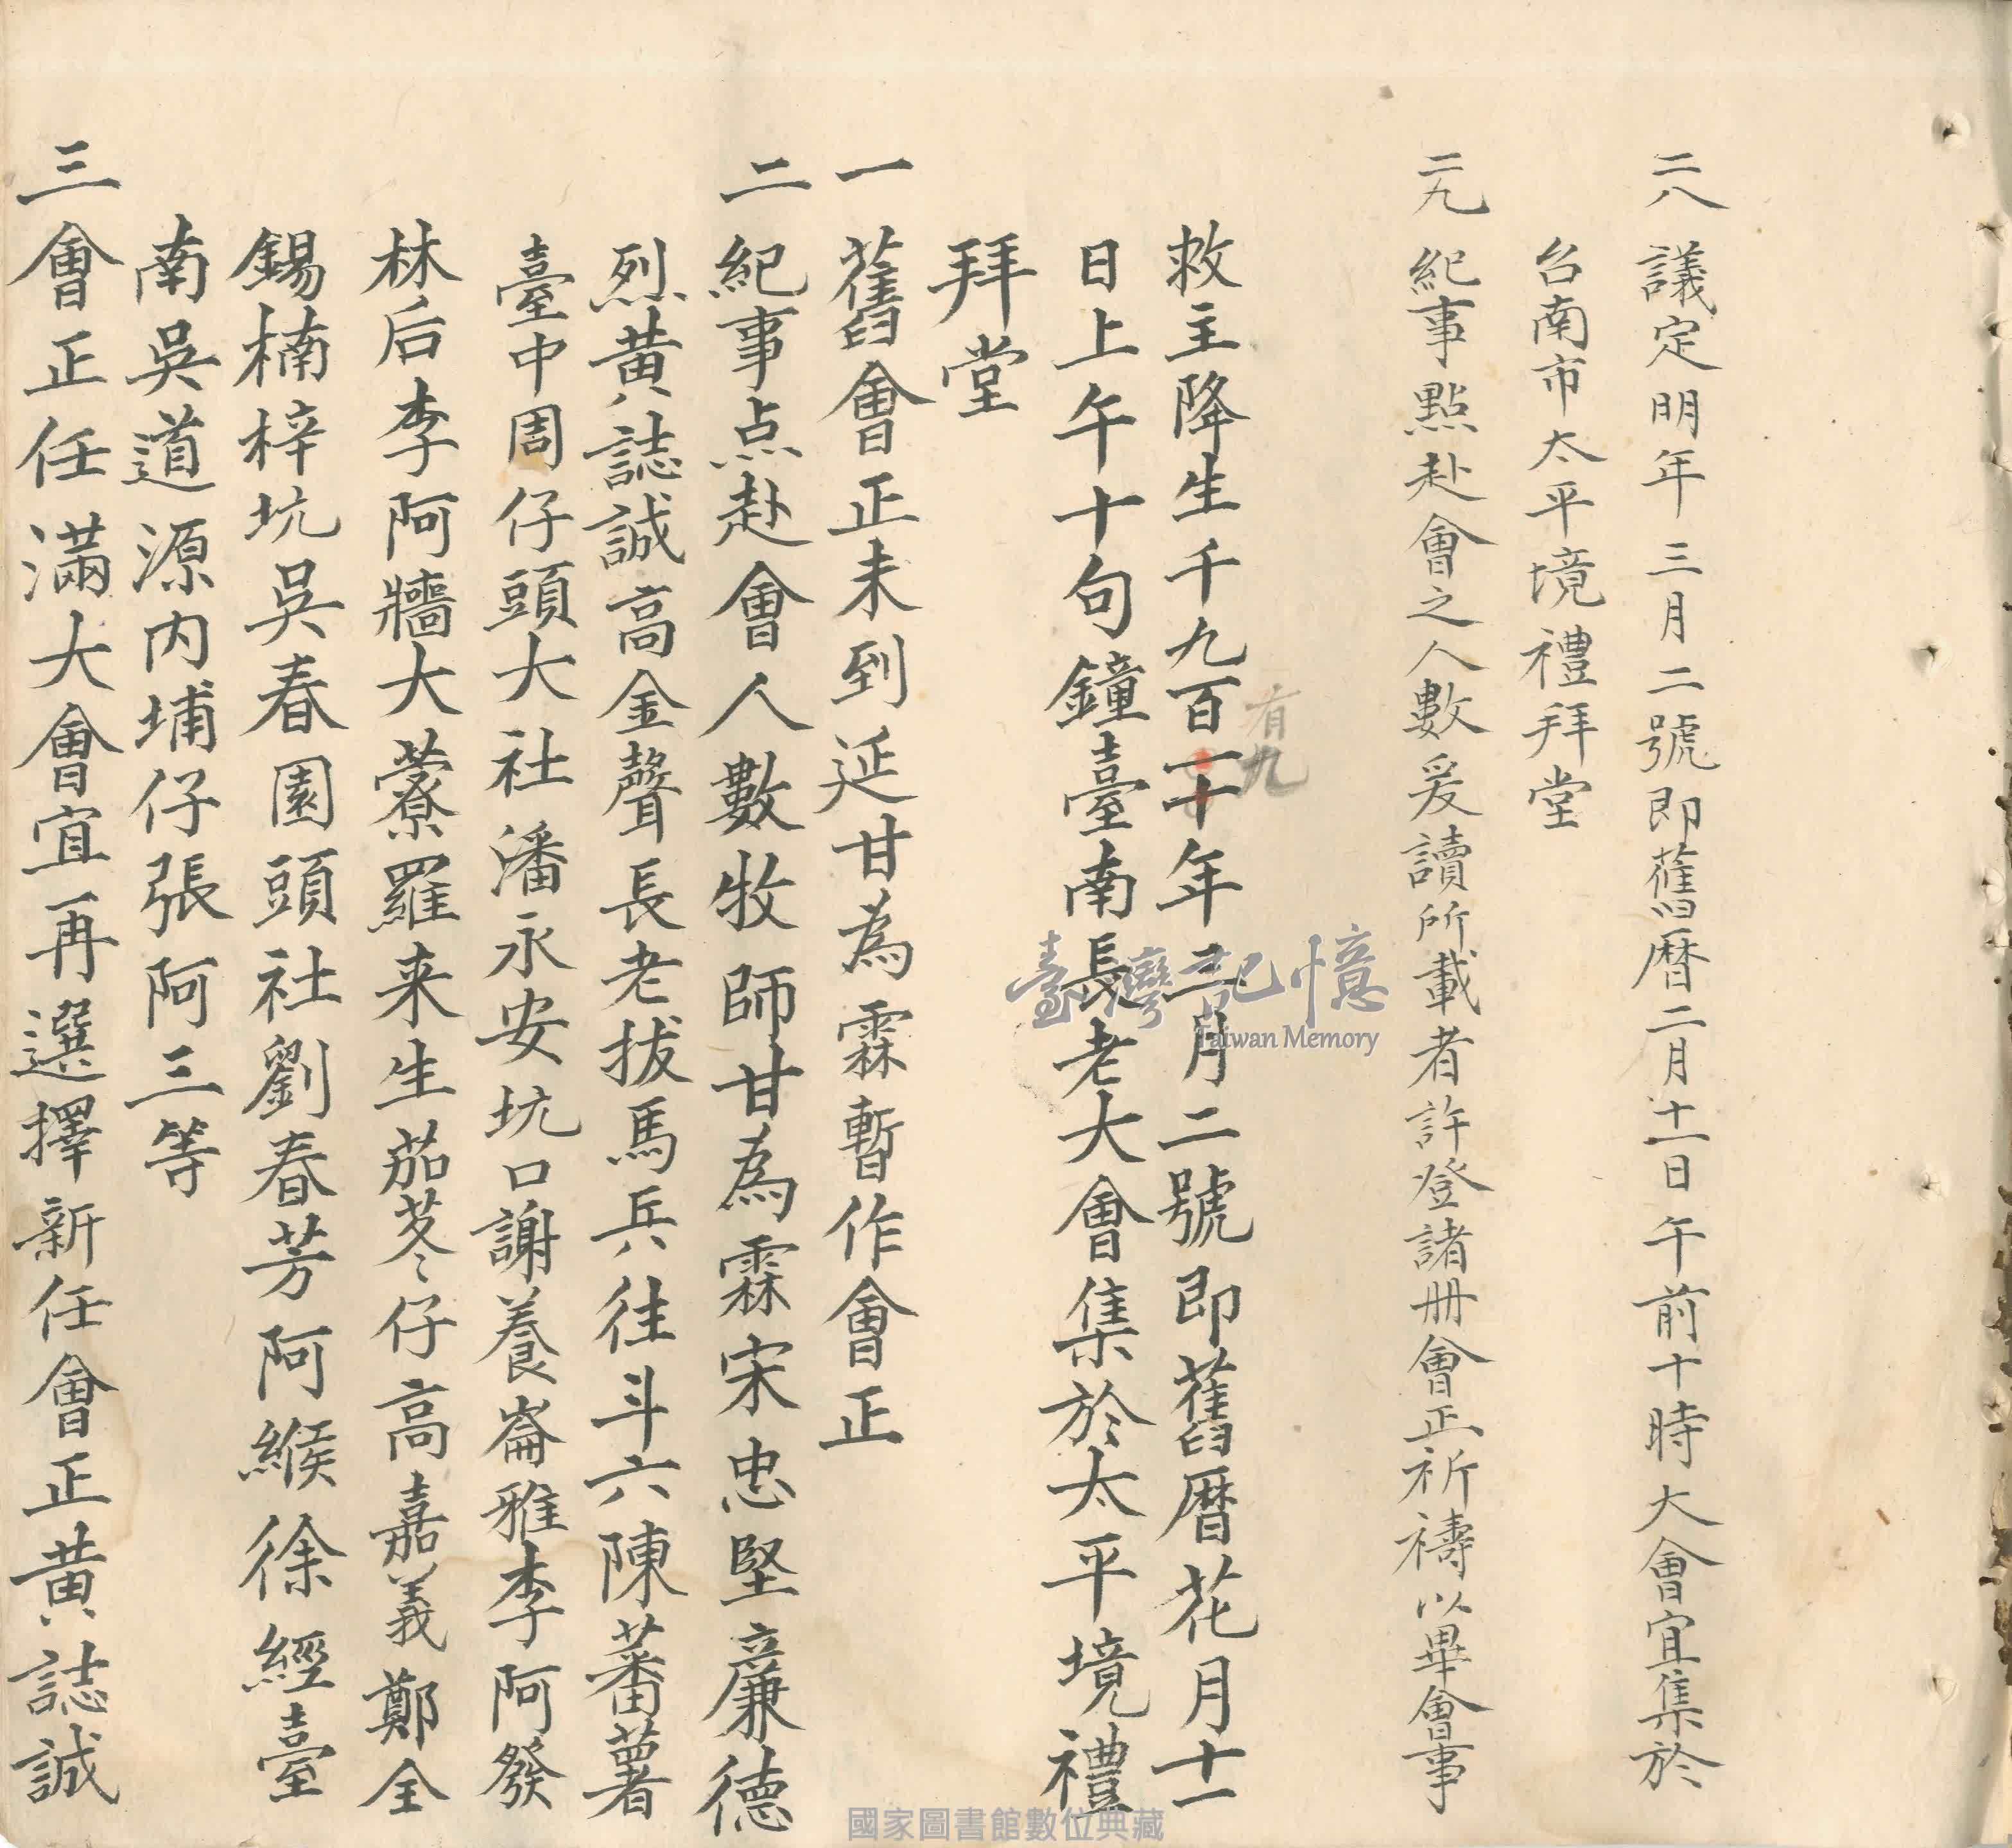 二八 議定明年三月二號即舊曆二月十一日午前十時大會宜集於
台南市太平境禮拜堂
二九 紀事點赴會之人數爰讀所載者許登諸册會正祈禱以畢會事
救主降生千九百二十年三月二號即舊曆花月十一
有九
日上午十句鐘臺南長老大會集於太平境禮
拜堂
一 舊會正未到延甘為霖暫作會正
二 紀事点赴會人數牧師甘為霖宋忠堅廉德
烈黃誌誠高金聲長老拔馬兵往斗六陳蕃薯
臺中周仔頭大社潘永安坑口謝養崙雅李阿發
林后李阿牆大藔羅来生茄苳仔高嘉義鄭全
錫楠梓坑吳春園頭社劉春芳阿緱徐經臺
南吳道源內埔仔張阿三等
三 會正任滿大會宜再選擇新任會正黃誌誠
臺灣記憶
Taiwan Memory
國家圖書館數位典藏